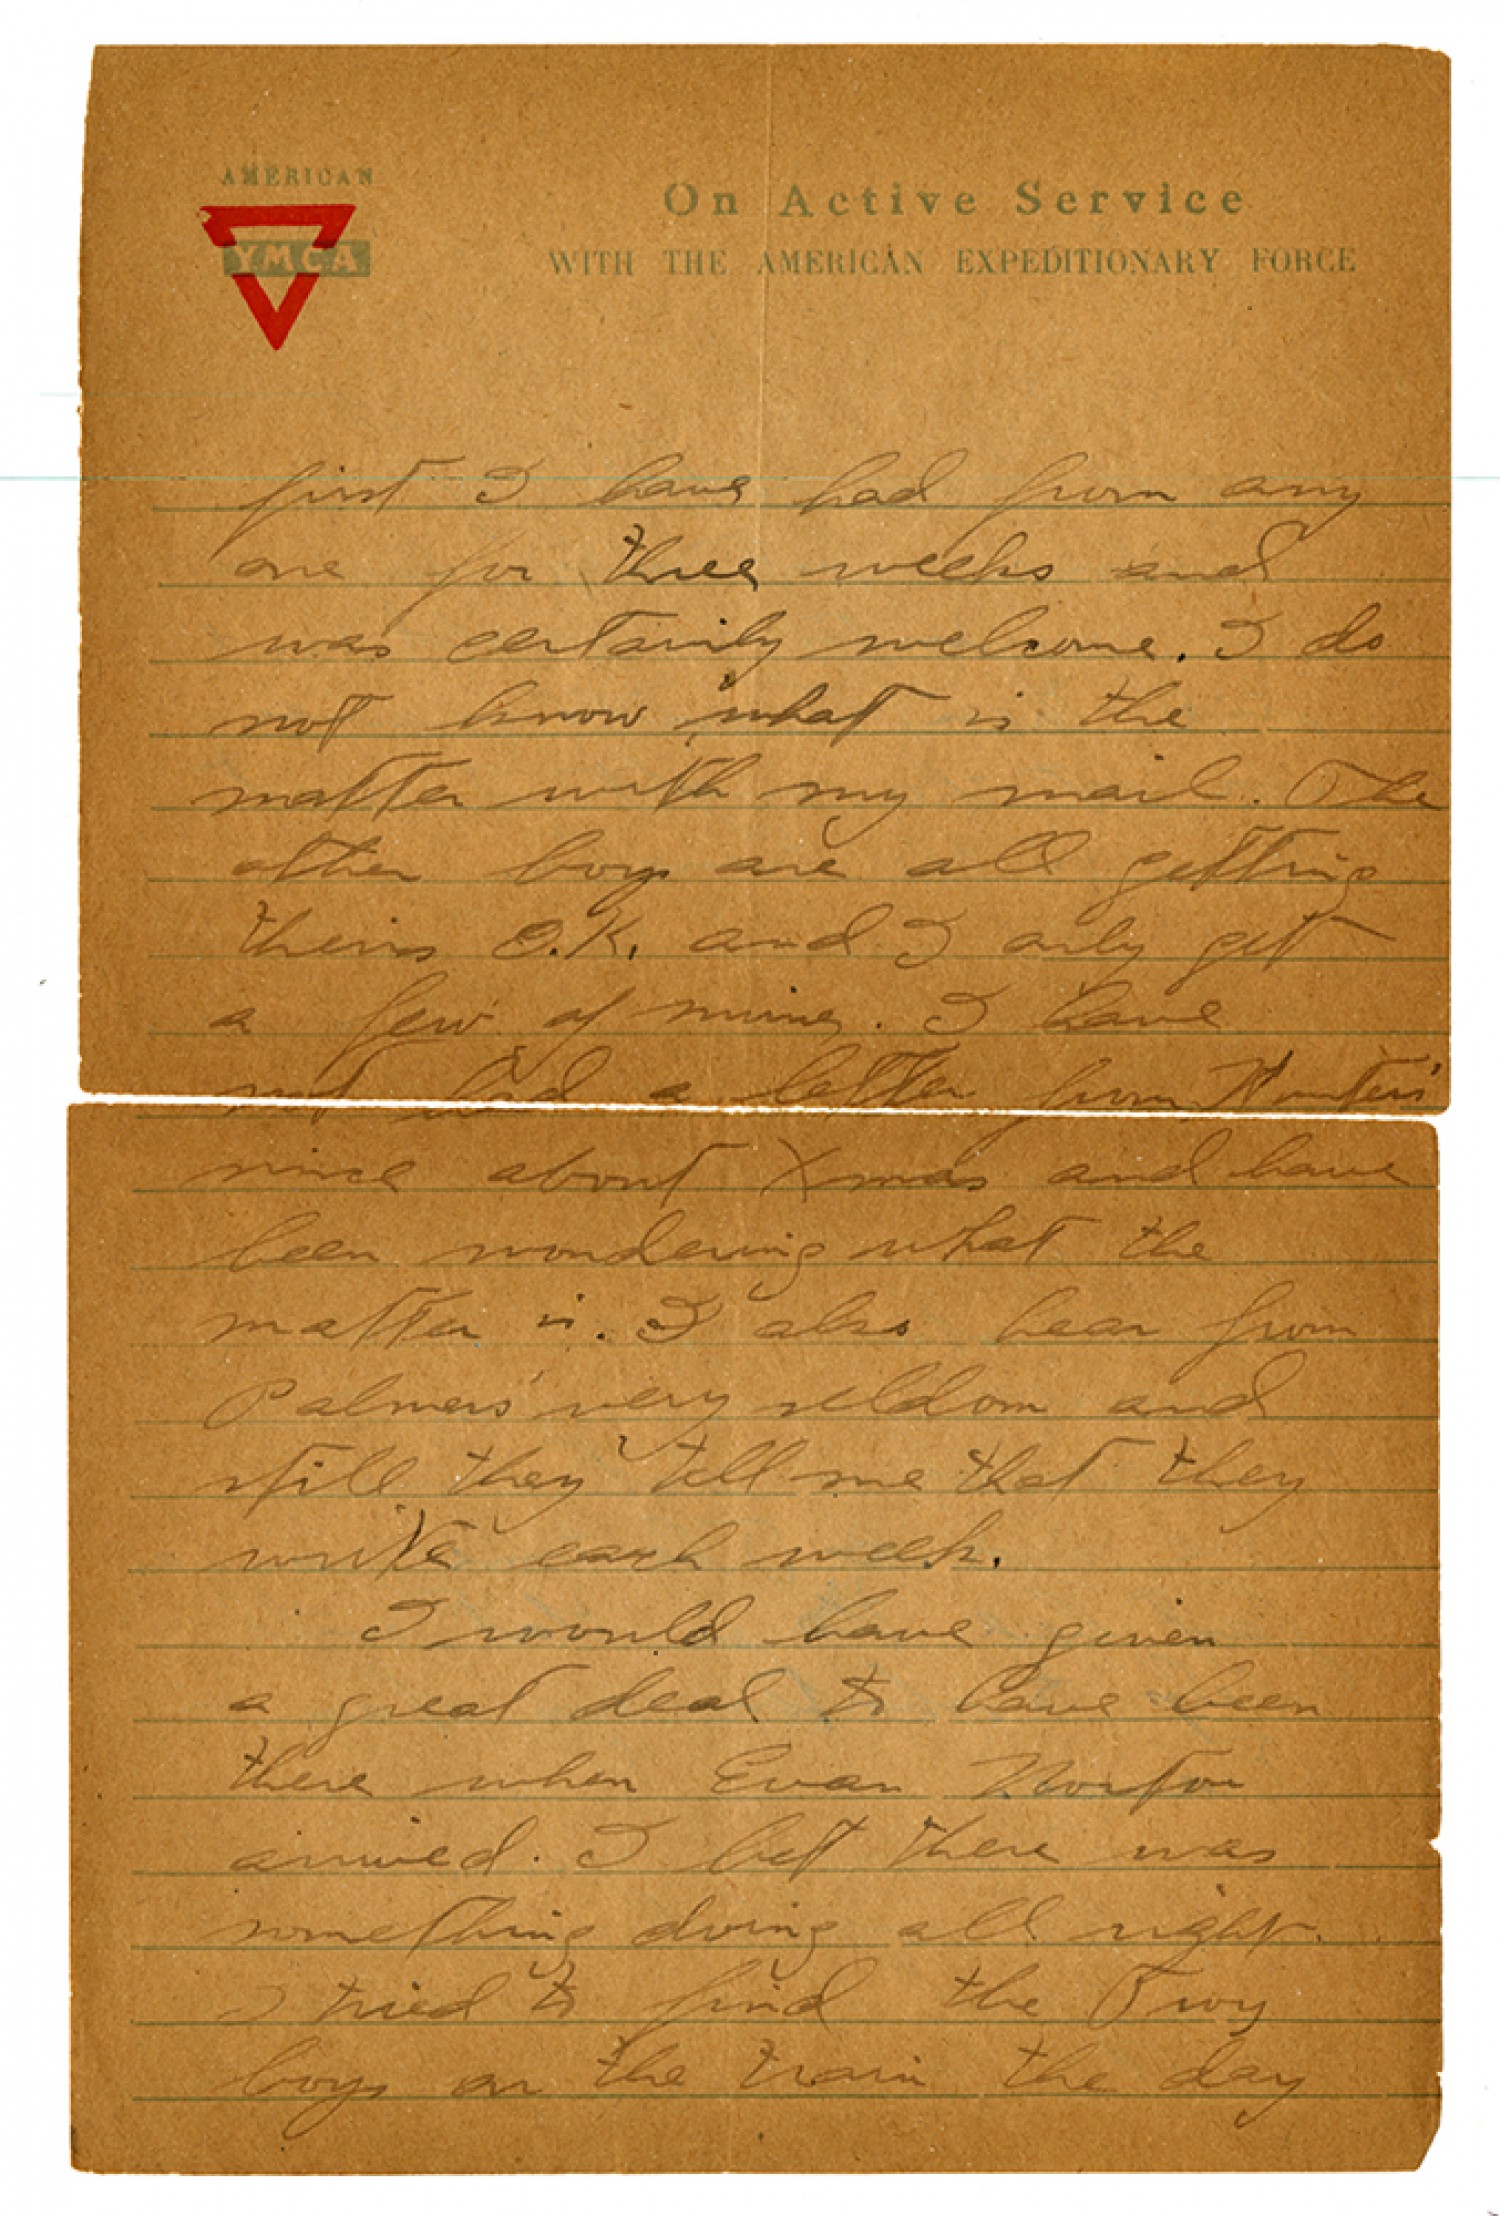 AMERICAN
YMCA
On Active Service
WITH THE AMERICAN EXPEDITIONARY FORCE
first I have had from any
one for three weeks and
was certainly welcome. I do
not know what is the
matter with my mail. The
other boys are all getting
theirs O.K. and I only get
a few of mine. I have
not had a letter from Hunters'
since about Xmas and have
been wondering what the
matter is. I also hear from
Palmers' very seldom and
still they tell me that they
write each week.
I would have given
a great deal to have been
there when Evan Norton
arrived. I bet there was
something doing all right.
I tried to find the Troy
boys on the train the day